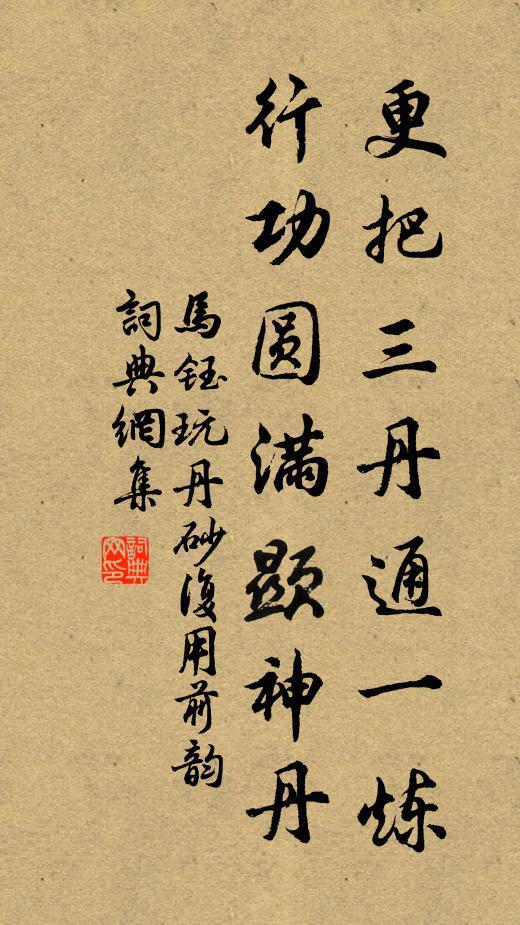 更把三丹通一炼
行功圆满显神丹
馬鈺玩丹砂復用前韵
詞典網集
詞典网印